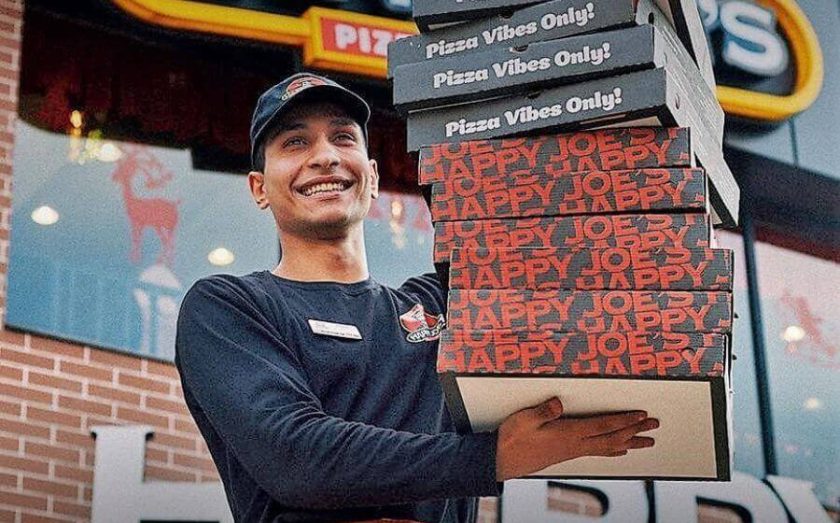 PIZZ
'S
Pizza Vibes Only!
Pizza Vibes Only!
Pizza Vibes Only!
JOE'S HAPPY JOE'S HAPPY
HAPPY JOE'S HAPPY JOE'S
HAPPY JOE'S HAPPY JOE'S
HAPPY JOE'S HAPPY JOE'S
HAPPY JOE'S HAPPY JOE'S
HAPPY JOE'S HAPPY JOE'S
H PPY